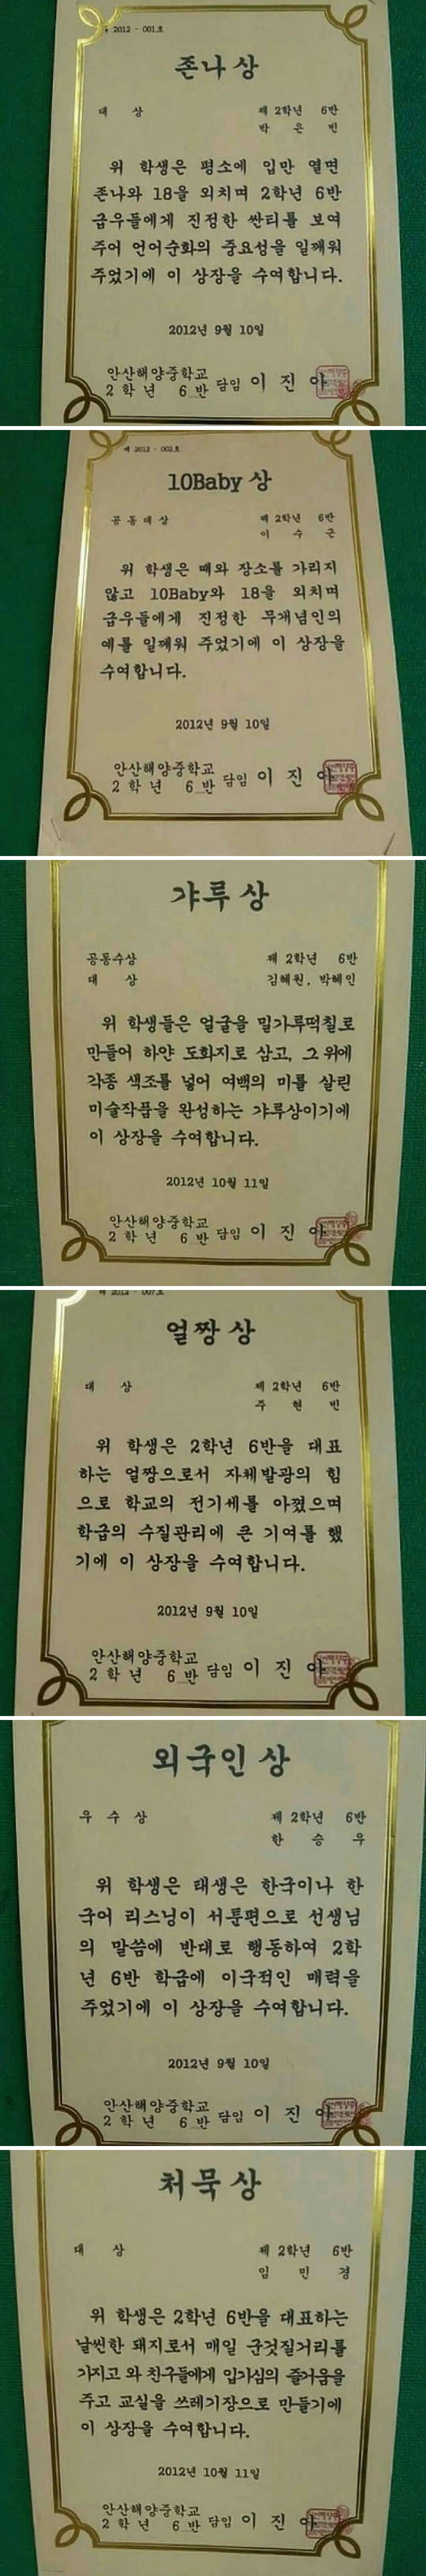 제 2012 - 001호
존나상
대 상 제 2학년 6반
박 은 빈
위 학생은 평소에 입만 열면
존나와 18을 외치며 2학년 6반
급우들에게 진정한 싼티를 보여
주어 언어순화의 중요성을 일깨워
주었기에 이 상장을 수여합니다.
2012년 9월 10일
안산해양중학교
2 학 년 6 반 담임 이 진 아
제 2012 - 002호
10Baby상
공동대상 제 2학년 6반
이 수 근
위 학생은 때와 장소를 가리지
않고 10Baby와 18을 외치며
급우들에게 진정한 무개념인의
예를 일깨워 주었기에 이 상장을
수여합니다.
2012년 9월 10일
안산해양중학교
2 학 년 6 반 담임 이 진 아
갸루상
공동수상 제 2학년 6반
대 상 김혜원, 박혜인
위 학생들은 얼굴을 밀가루떡칠로
만들어 하얀 도화지로 삼고, 그 위에
각종 색조를 넣어 여백의 미를 살린
미술작품을 완성하는 갸루상이기에
이 상장을 수여합니다.
2012년 10월 11일
안산해양중학교
2 학 년 6 반 담임 이 진 아
제 2012 - 007호
얼짱상
대 상 제 2학년 6반
주 현 빈
위 학생은 2학년 6반을 대표
하는 얼짱으로서 자체발광의 힘
으로 학교의 전기세를 아꼈으며
학급의 수질관리에 큰 기여를 했
기에 이 상장을 수여합니다.
2012년 9월 10일
안산해양중학교
2 학 년 6 반 담임 이 진 아
외국인상
우 수 상 제 2학년 6반
한 승 우
위 학생은 태생은 한국이나 한
국어 리스닝이 서툰편으로 선생님
의 말씀에 반대로 행동하여 2학
년 6반 학급에 이국적인 매력을
주었기에 이 상장을 수여합니다.
2012년 9월 10일
안산해양중학교
2 학 년 6 반 담임 이 진 아
처묵상
대 상 제 2학년 6반
임 민 경
위 학생은 2학년 6반을 대표하는
날씬한 돼지로서 매일 군것질거리를
가지고 와 친구들에게 입가심의 즐거움을
주고 교실을 쓰레기장으로 만들기에
이 상장을 수여합니다.
2012년 10월 11일
안산해양중학교
2 학 년 6 반 담임 이 진 아